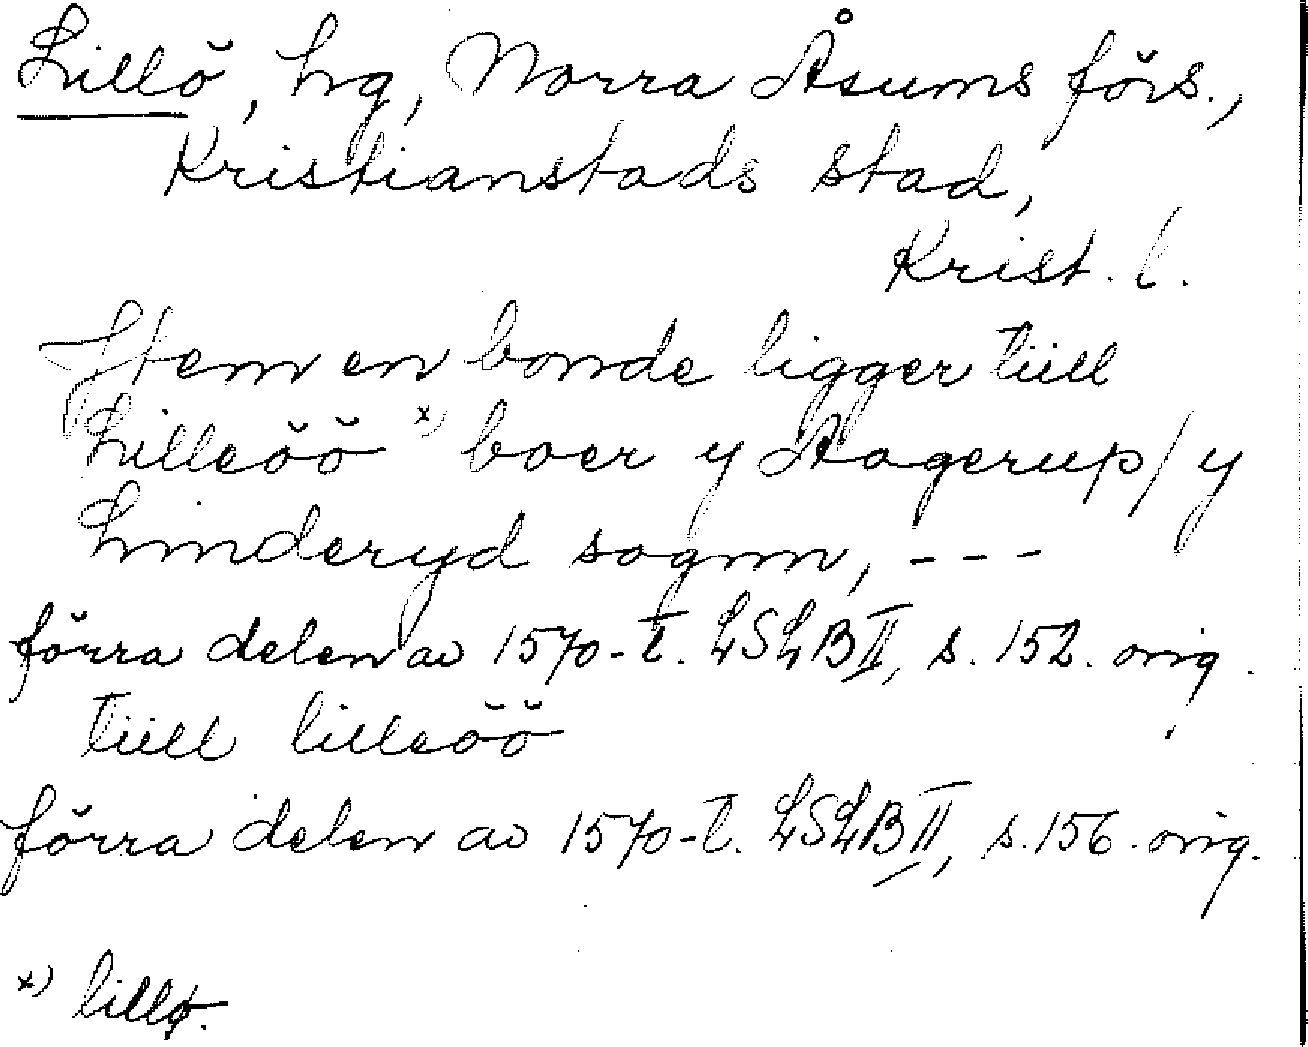 Lillö, hg, Norra Åsums förs.,
Kristianstads stad,
Krist. l.
Jtem en bonde ligger tiill
Lilleöö x) boer y Aagerup / y
Linderyd sognn, ---
förra delen av 1570-t. LSLB II, s. 152. orig.
tiill lilleöö
förra delen av 1570-t. LSLB II, s. 156. orig.
x) lillø.